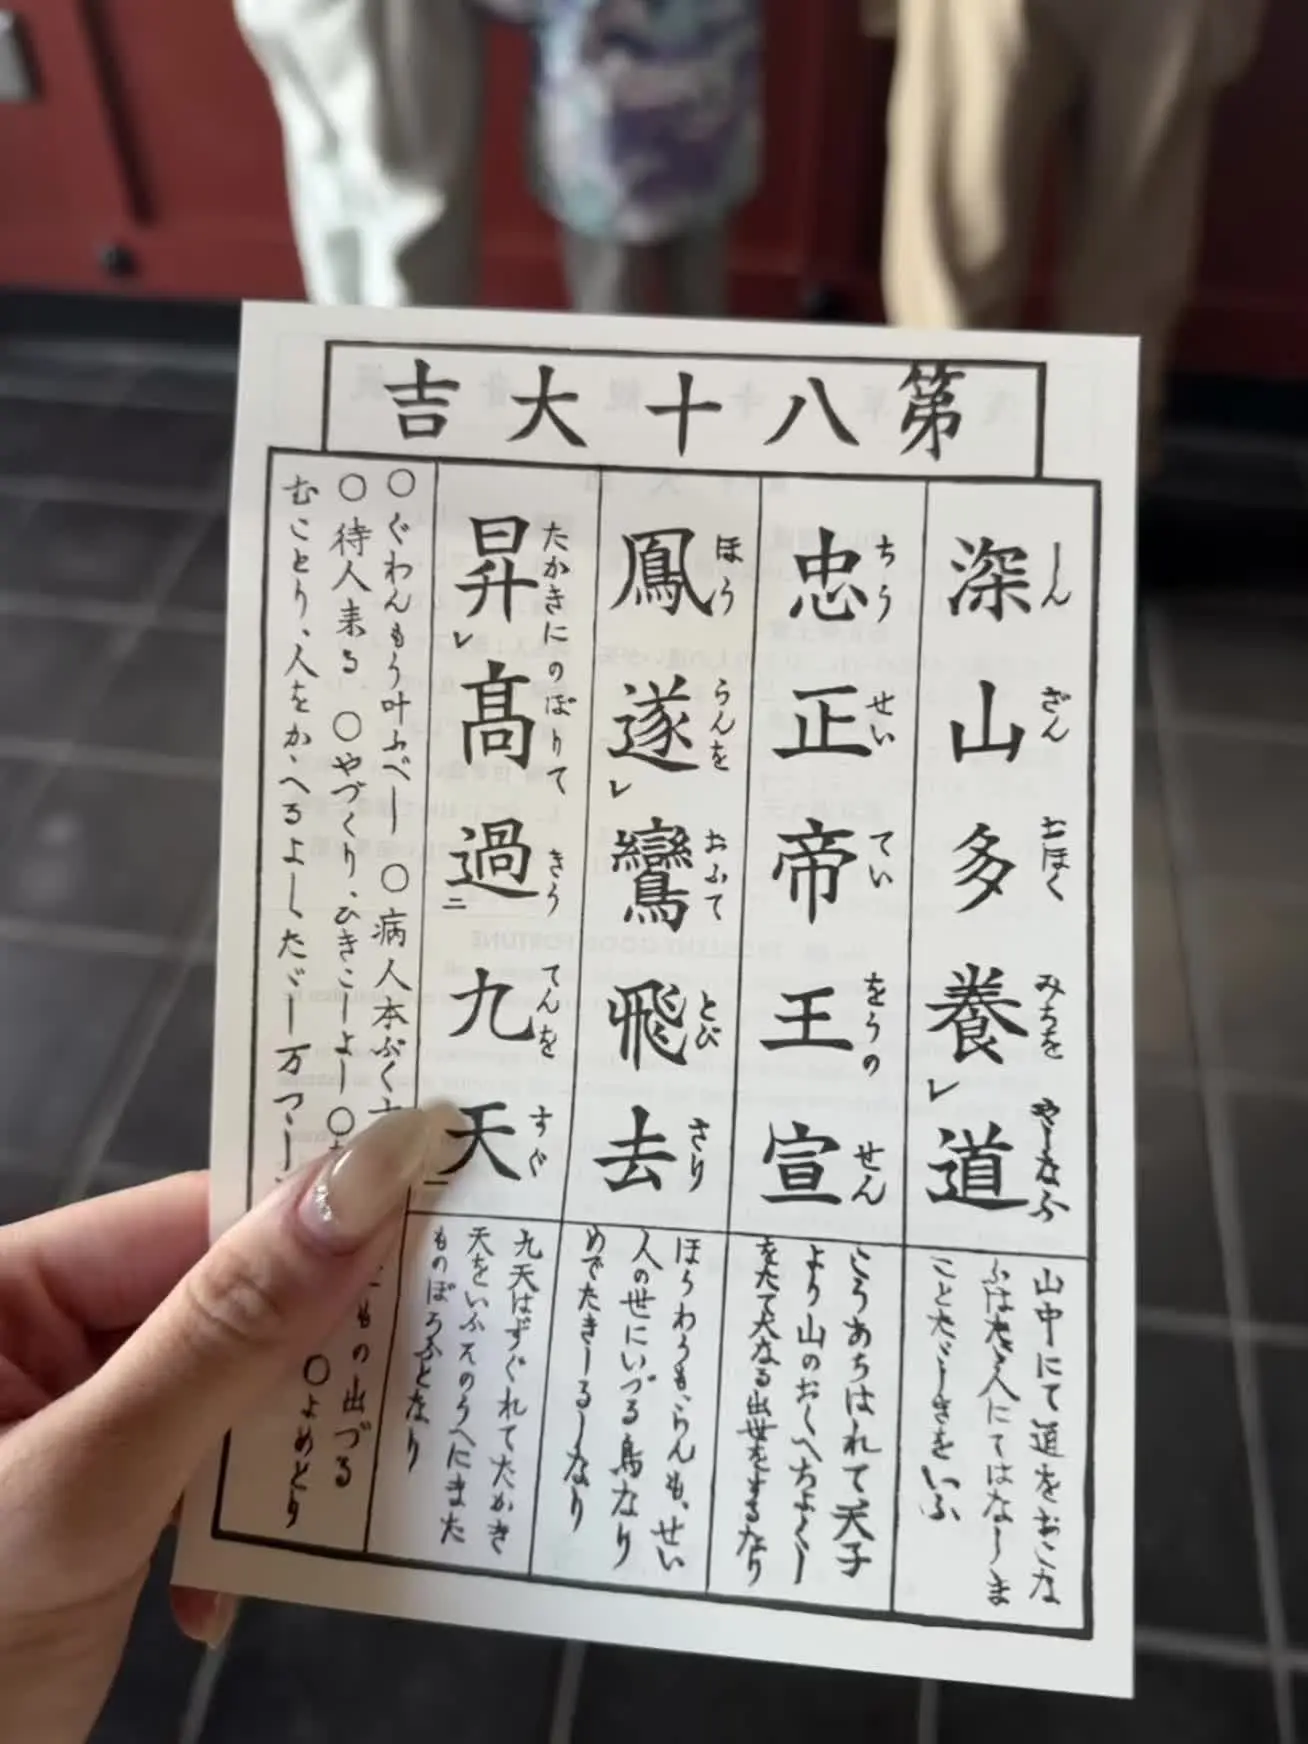 第八十大吉
深山多養道
しんざんおほくみちをやしなふ
忠正帝王宣
ちうせいていをうのせん
鳳遂鸞飛去
ほうらんをおふてとびさり
昇高過九天
たかきにのぼりてきうてんをすぐ
山中にて道をおこな
ふはたゞ人にてはなしま
ことたゞしきをいふ
こうあらはれて天子
より山のおくへちよくし
をたて大なる出世をするなり
ほうわうも、らんも、せい
人の世にいづる鳥なり
めでたきしるしなり
九天はすぐれてたかき
天をいふそのうへにまた
ものぼるふとなり
○ぐわんもう叶ふべし ○病人本ぷく もの出づる
○待人来る ○やづくり、ひきこしよし ○ ○よめどり
むことり、人をかゝへるよし、たゞし万つゝし